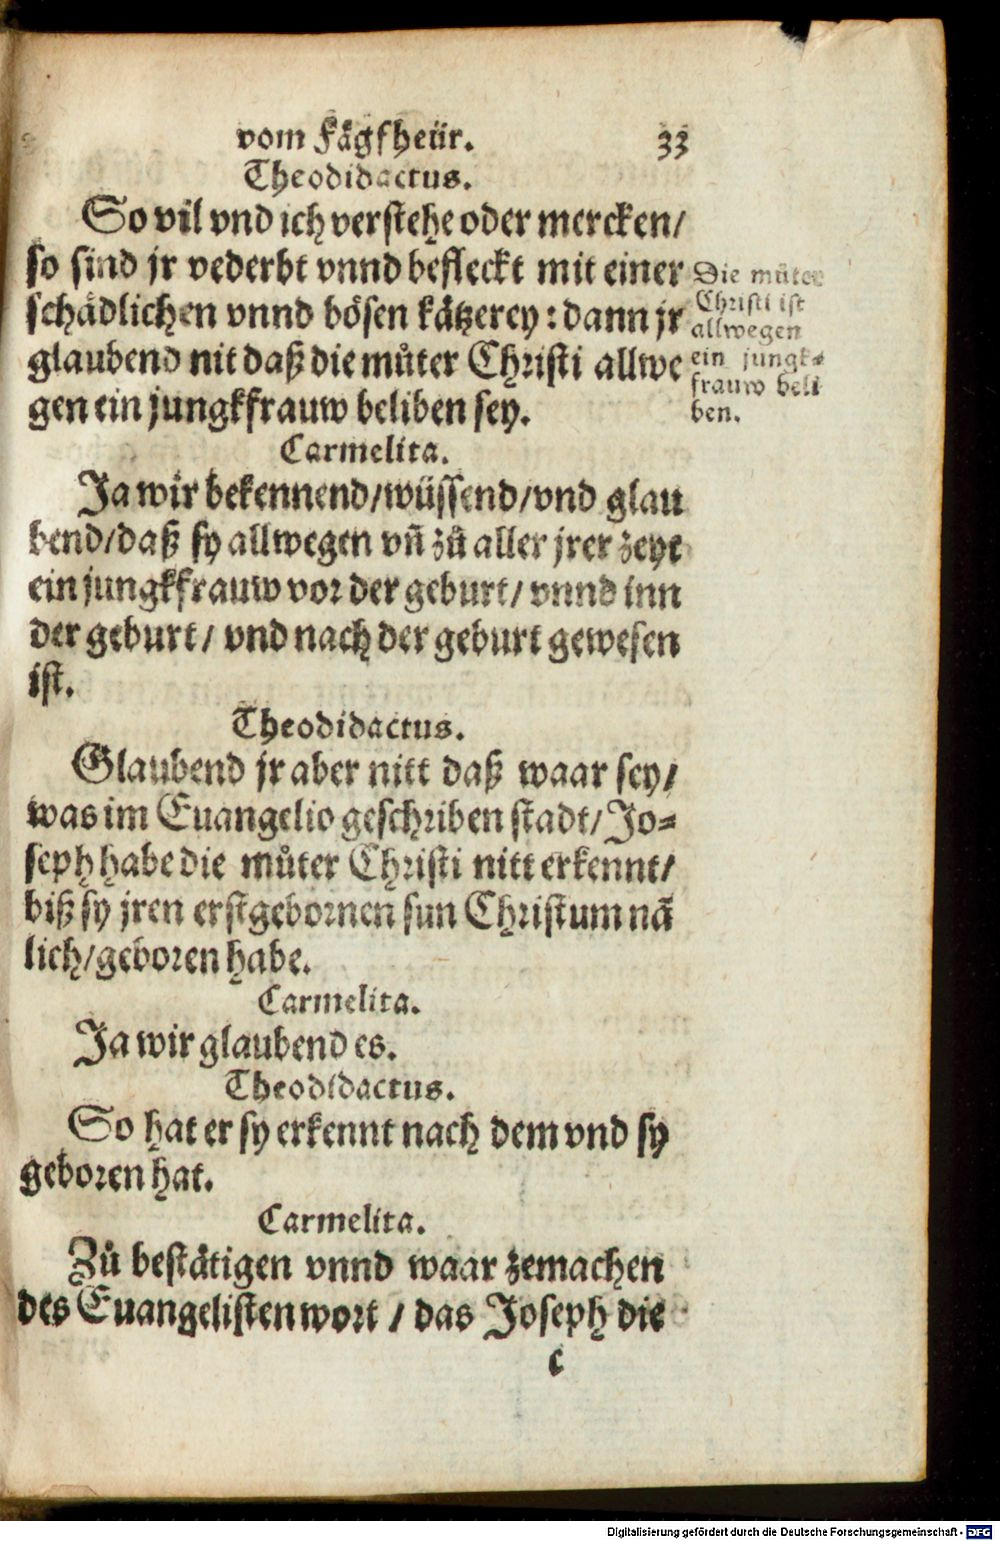 vom Fågfheür. 33
Theodidactus.
So vil vnd ich verstehe oder mercken/
so sind jr vederbt vnnd befleckt mit einer
schådlichen vnnd bösen kåtzerey: dann jr
glaubend nit daß die můter Christi allwe
gen ein jungkfrauw beliben sey.
Die můter
Christi ist
allwegen
ein jungk-
frauw beli
ben.
Carmelita.
Ja wir bekennend/wüssend/vnd glau
bend/daß sy allwegen vñ zů aller jrer zeyt
ein jungkfrauw vor der geburt/ vnnd inn
der geburt/ vnd nach der geburt gewesen
ist.
Theodidactus.
Glaubend jr aber nitt daß waar sey/
was im Euangelio geschriben stadt/Jo-
seph habe die můter Christi nitt erkennt/
biß sy jren erstgebornen sun Christum nã
lich/geboren habe.
Carmelita.
Ja wir glaubend es.
Theodidactus.
So hat er sy erkennt nach dem vnd sy
geboren hat.
Carmelita.
Zů beståtigen vnnd waar zemachen
des Euangelisten wort / das Joseph die
c
Digitalisierung gefördert durch die Deutsche Forschungsgemeinschaft - DFG